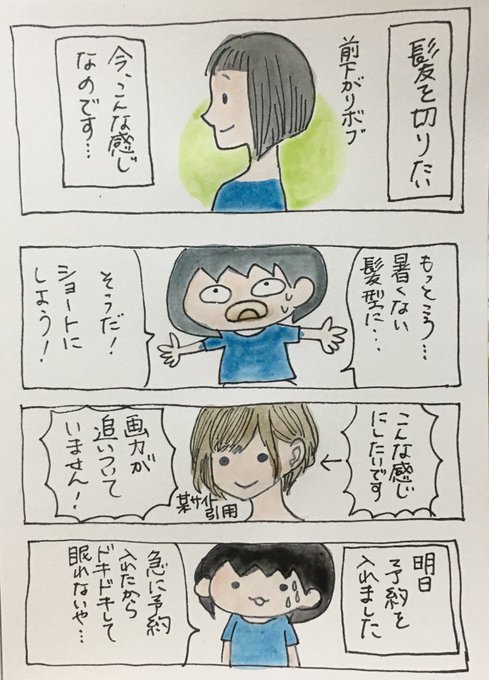 髪を切りたい
前下がりボブ
今、こんな感じ
なのです…
もっとこう…
暑くない
髪型に…
そうだ!
ショートに
しよう!
こんな感じ
にしたいです
某サイト
引用
画力が
追いついて
いません!
明日
予約を
入れました
急に予約
入れたから
ドキドキして
眠れないや…